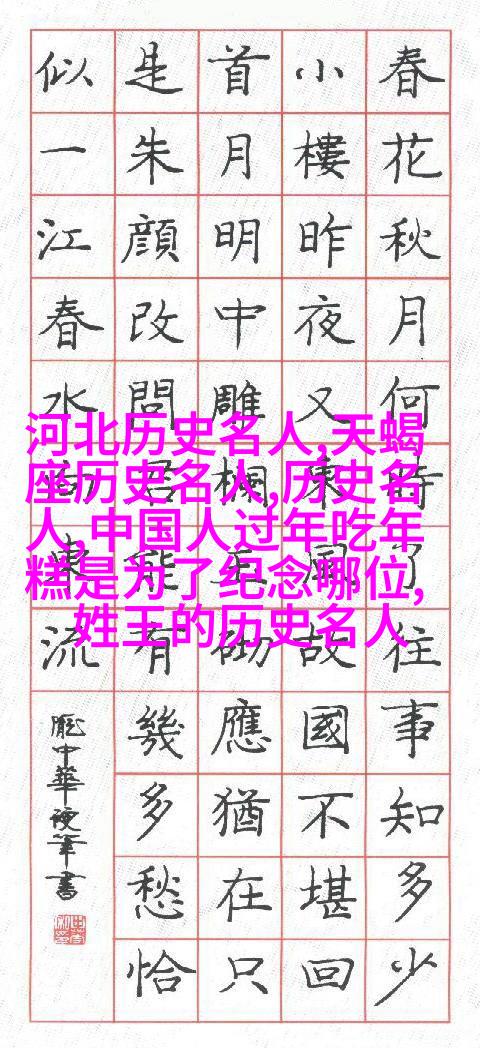 春花秋月何時了往事知多少
小樓昨夜又東風故國不堪回
首月明中雕欄玉砌應猶在只
是朱顏改問君能有幾多愁恰
似一江春水向東流
龐中華硬筆書
河北历史名人,天蝎
座历史名人,历史名
人, 中国人过年吃年
糕是为了纪念哪位,
姓王的历史名人